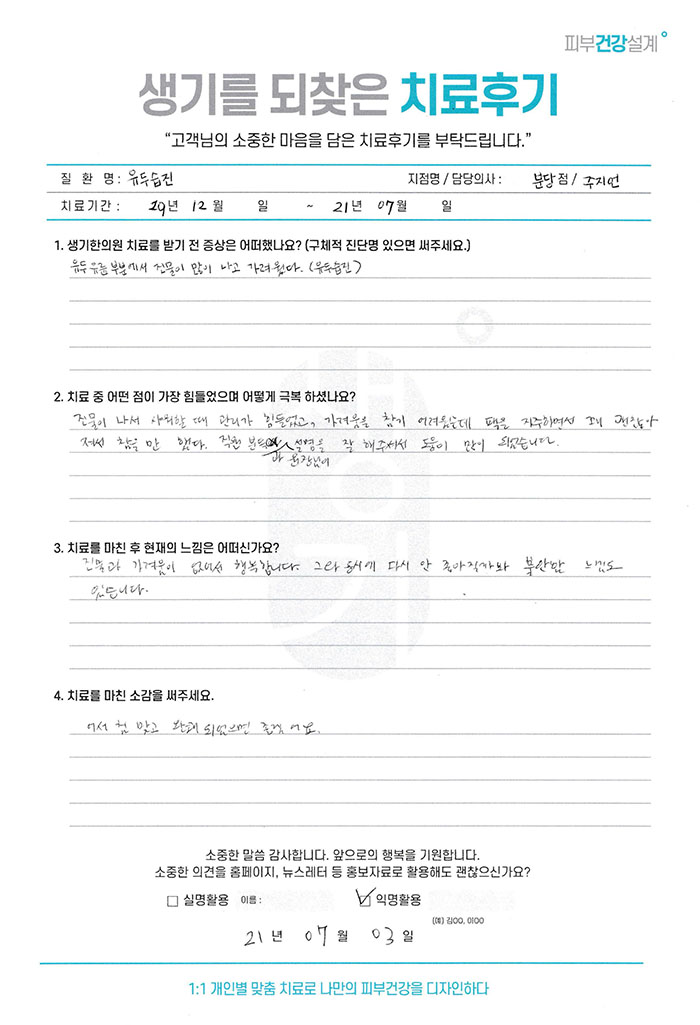 피부건강설계
생기를 되찾은 치료후기
“고객님의 소중한 마음을 담은 치료후기를 부탁드립니다.”
질 환 명 : 유두습진 지점명 / 담당의사 : 분당 점 / 주지언
치료기간 : 19년 12월 일 ~ 21년 07월 일
1. 생기한의원 치료를 받기 전 증상은 어떠했나요? (구체적 진단명 있으면 써주세요.)
유두 유륜 부분에서 진물이 많이 나고 가려웠다. (유두습진)
2. 치료 중 어떤 점이 가장 힘들었으며 어떻게 극복 하셨나요?
진물이 나서 샤워할 때 관리가 힘들었고, 가려움을 참기 어려웠는데 팩을 자주하면서 괜찮아
져서 참을 만 했다. 직원 분들 설명을 잘 해주셔서 도움이 많이 되었습니다.
과 원장님이
3. 치료를 마친 후 현재의 느낌은 어떠신가요?
진물과 가려움이 없어서 행복합니다. 그와 동시에 다시 안 좋아질까봐 불안한 느낌도
있습니다.
4. 치료를 마친 소감을 써주세요.
어서 침 맞고 완쾌 되었으면 좋겠어요.
소중한 말씀 감사합니다. 앞으로의 행복을 기원합니다.
소중한 의견을 홈페이지, 뉴스레터 등 홍보자료로 활용해도 괜찮으신가요?
□ 실명활용 이름 : ☑ 익명활용
(예) 김OO, 이OO
21 년 07 월 03 일
1:1 개인별 맞춤 치료로 나만의 피부건강을 디자인하다